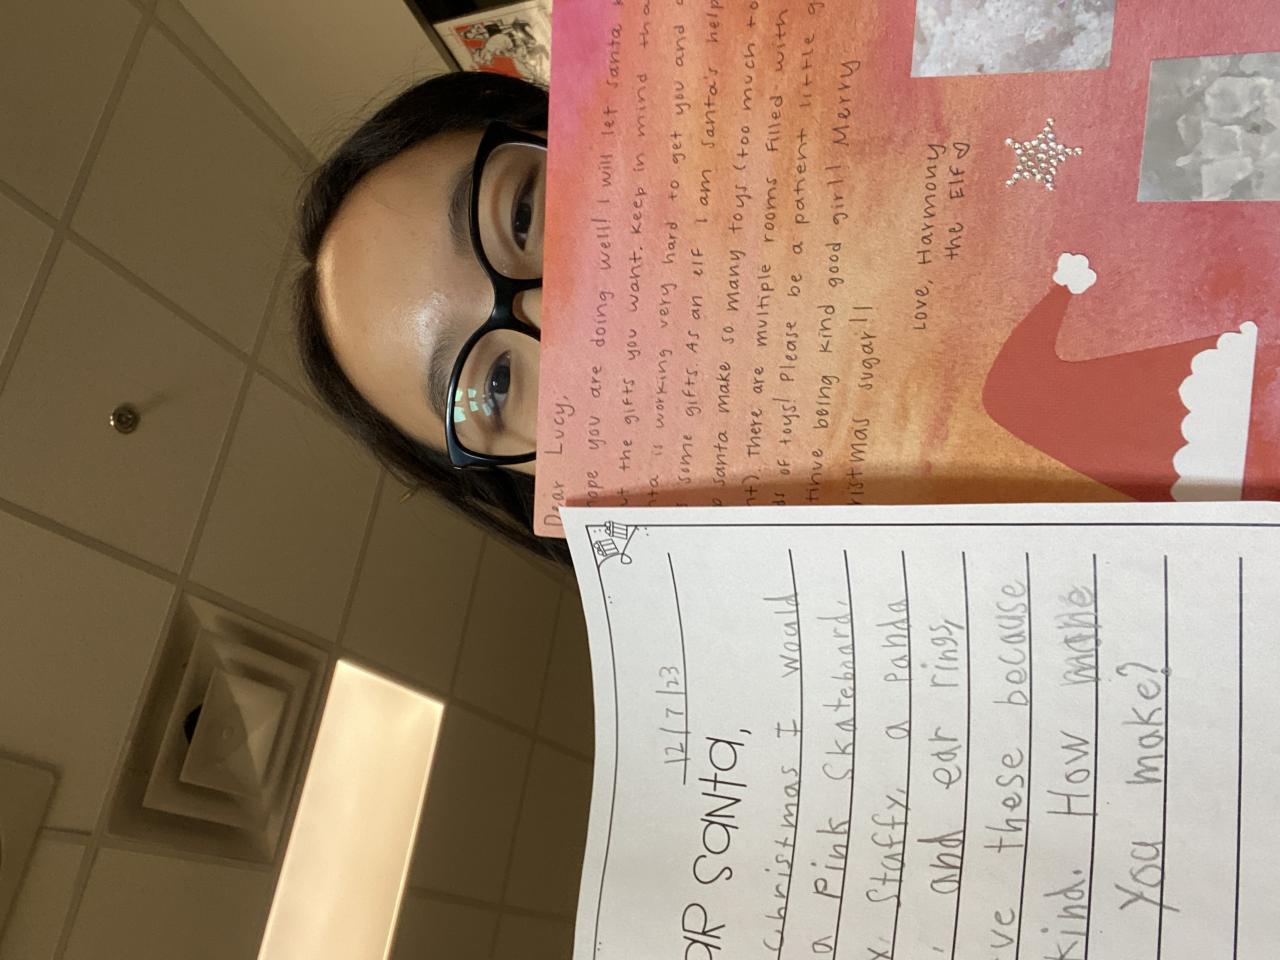 Dear Lucy,
hope you are doing well! I will let santa
the gifts you want. Keep in mind
is working very hard to get you and
some gifts. As an elf I am santa's
santa make so many toys (too much to
there are multiple rooms filled with
of toys! Please be a patient little
being kind good girl! Merry
sugar!!
Love, Harmony
the Elf
12/7/23
SANTA,
Christmas I would
a pink skateboard,
Staffy, a panda
, and ear rings,
these because
kind. How
You make?